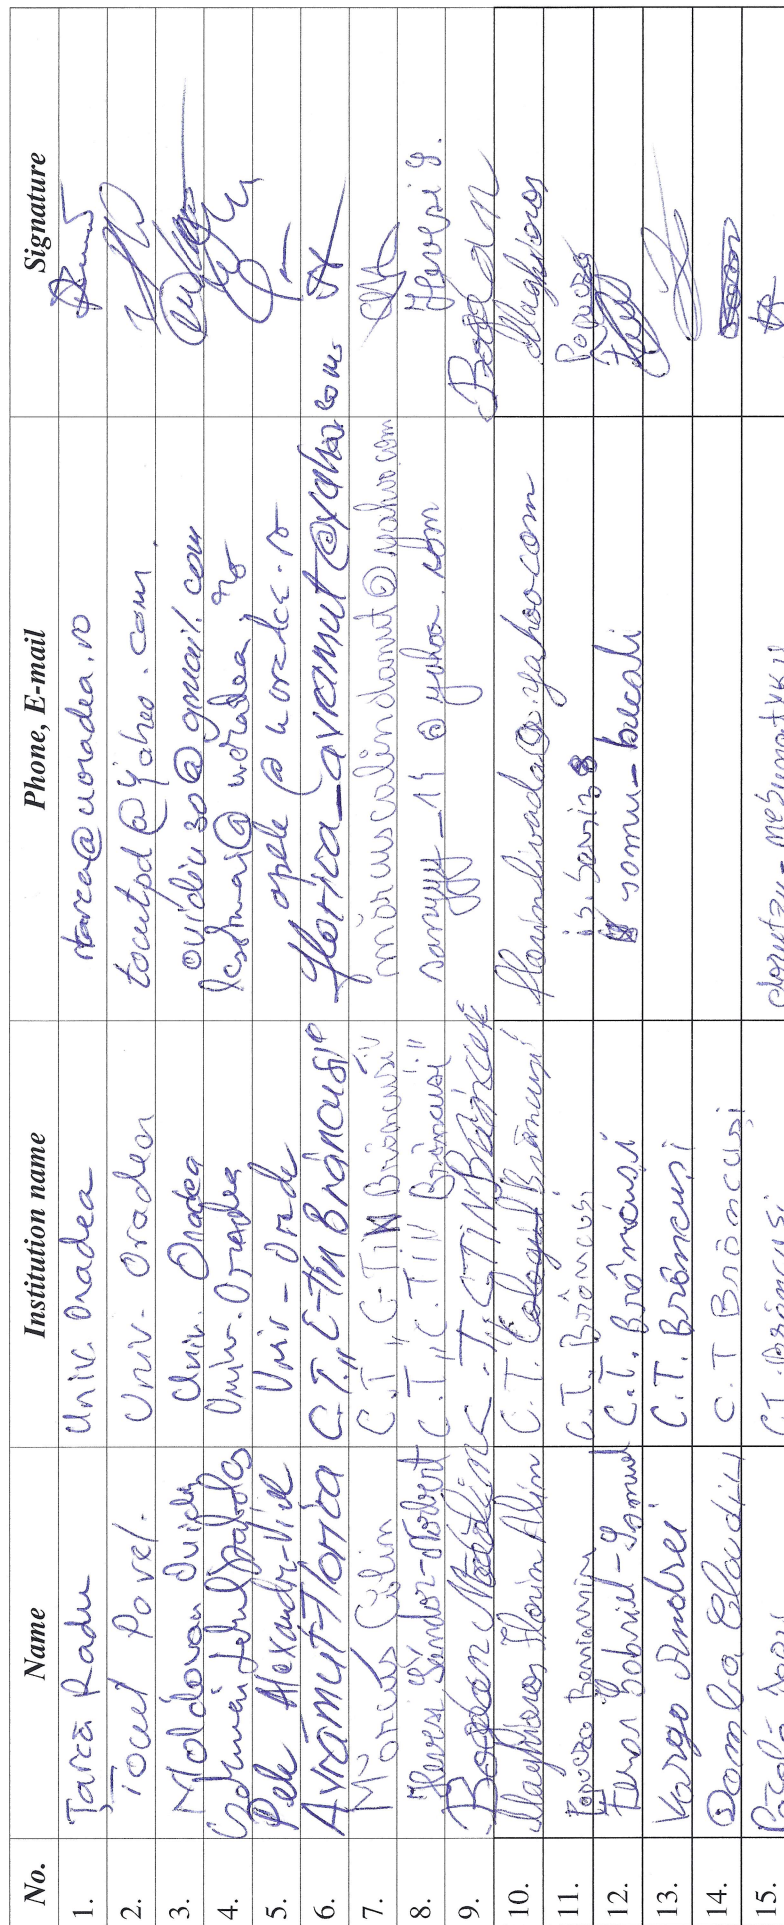 No. Name Institution name Phone, E-mail Signature
1. Țarcă Radu Univ. Oradea rtarca@uoradea.ro
2. Tocuț Pavel. Univ. Oradea tocutpd@Yahoo.com
3. Moldovan Ovidiu Univ. Oradea ovidiu30@gmail.com
4. Univ. Oradea
5. Pele Alexandru-Viorel Univ-Oradea apele@uoradea.ro
6. Avramuț Florica C.T. „C-tin Brâncuși" florica_avramut@yahoo.com
7. Mărcuș Călin C.T „C-TIN Brâncuși" marcuscalindanut@yahoo.com
8. Hevesi Sándor-Norbert C.T „C.TIN Brâncuși" sanyyy_14@yahoo.com Hevesi S.
9. Bogdan Mădălina C.T. C-TIN BRÂNCUȘI Bogdan
10. Maghiaros Florin Alin C.T. Colegiul Brâncuși florinlivada@yahoo.com Maghiaros
11. Popoczo Beniamin C.T. Brâncuși
12. Gabriel-Samuel C.T. Brâncuși samu_becali
13. Vargo Andrei C.T. Brâncuși
14. Domba Claudiu C.T Brâncuși
15. C.T. Brâncuși